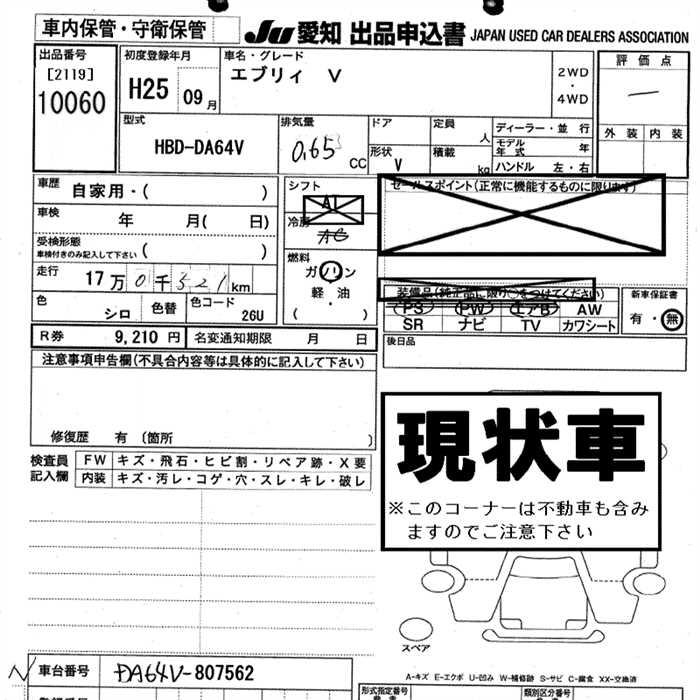 車内保管・守衛保管
JU 愛知 出品申込書 JAPAN USED CAR DEALERS ASSOCIATION
出品番号
[2119]
10060
初度登録年月
H25 09月
車名・グレード
エブリィ V
2WD
・
4WD
評価点
―
外装 内装
型式
HBD-DA64V
排気量
0.65 CC
ドア
形状 V
定員 人
積載 kg
ディーラー・並行
モデル年式 年
ハンドル 左・右
車歴 自家用・( )
車検 年 月( 日)
受検形態
車検付きのみ記入して下さい ( )
走行 17万0千321km
色 シロ 色替 色コード 26U
シフト
AT
冷房
AC
燃料
ガソリン
軽・油
( )
セールスポイント(正常に機能するものに限ります)
装備品(純正品に限り○をつけてください)
PS PW エアB AW
SR ナビ TV カワシート
新車保証書
有・無
R券 9,210円 名変通知期限 月 日
後日品
注意事項申告欄(不具合内容等は具体的に記入して下さい)
修復歴 有 〔箇所 〕
検査員
記入欄
FW キズ・飛石・ヒビ割・リペア跡・X要
内装 キズ・汚レ・コゲ・穴・スレ・キレ・破レ
現状車
※このコーナーは不動車も含み
ますのでご注意下さい
スペア
A-キズ E-エクボ U-凹み W-補修跡 S-サビ C-腐食 XX-交換済
車台番号 DA64V-807562
形式指定番号
類別区分番号